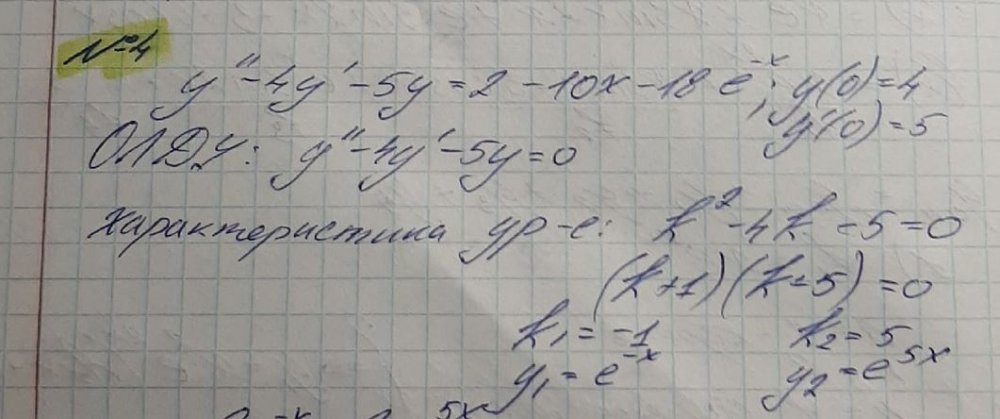 №4
y'' - 4y' - 5y = 2 - 10x - 18e^{-x}; y(0) = 4
y'(0) = 5
ОЛДУ: y'' - 4y' - 5y = 0
Характеристика ур-е: k² - 4k - 5 = 0
(k+1)(k-5) = 0
k₁ = -1 k₂ = 5
y₁ = e^{-x} y₂ = e^{5x}